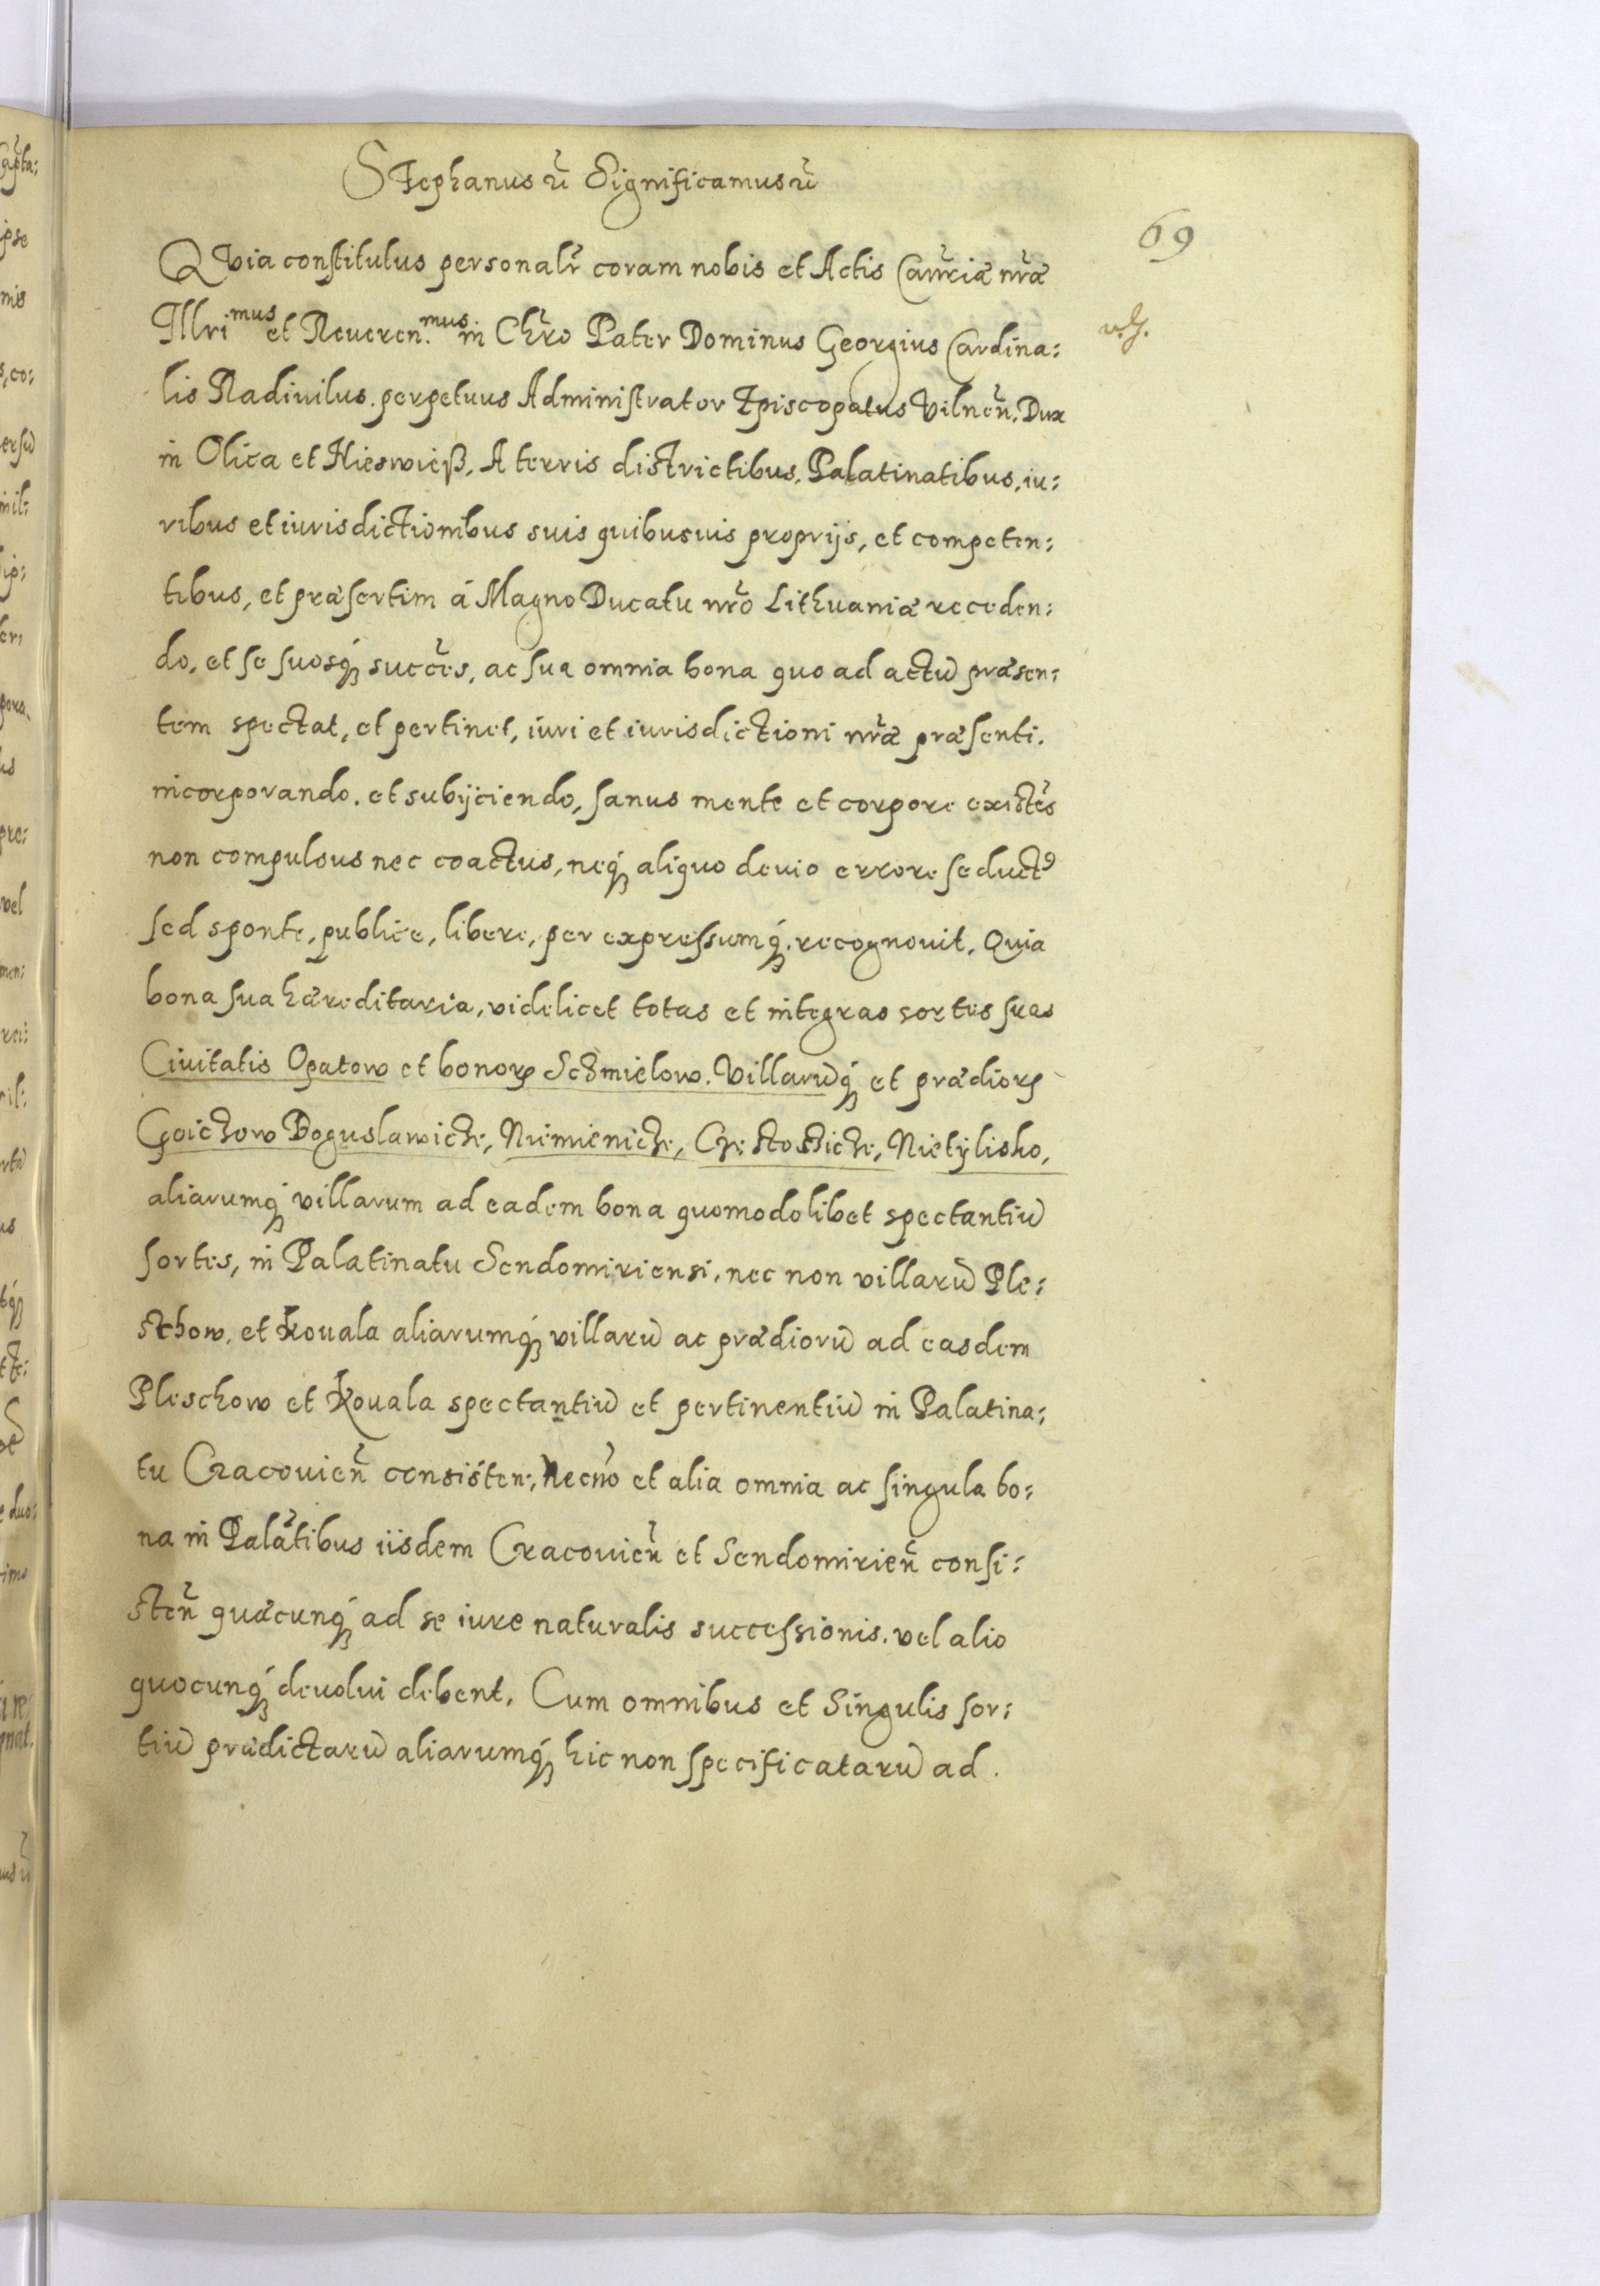 Stephanus r̃ Significamus r̃
69
Quia constitutus personalr̃ coram nobis et Actis Canr̃ciæ nr̃æ
Illri^mus et Reueren.^mus in Chr̃o Pater Dominus Georgius Cardina:
lis Radiuilus. perpetuus Administrator Episcopatus Vilneñ. Dux
in Olica et Nieswieß, A terris districtibus, Palatinatibus, iu:
ribus et iurisdictionibus suis quibusuis proprijs, et competen:
tibus, et præsertim á Magno Ducatu nr̃o Lithuaniæ receden:
do, et se suosq́ȝ succr̃es, ac sua omnia bona quo ad actũ præsen:
tem spectat, et pertinet, iuri et iurisdictioni nr̃æ præsenti.
incorporando. et subijciendo, sanus mente et corpore existẽs
non compulsus nec coactus, neq́ȝ aliquo deuio errore seductꝰ
sed sponte, publice, libere, per expressumq́ȝ. recognouit, Quia
bona sua hæreditaria, videlicet totas et integras sortes suas
Ciuitatis Opatow et bonoꝝ Schmielow. Villarũq́ȝ et prædioꝝ
Goichow Boguslawicze, Niemienicze, Czestoscicze, Nietylisko,
aliarumq́ȝ villarum ad eadem bona quomodolibet spectantiũ
sortes, in Palatinatu Sendomiriensi, nec non villarũ Ple:
schow, et Kouala aliarumq́ȝ villarũ ac prædiorũ ad easdem
Pleschow et Kouala spectantiũ et pertinentiũ in Palatina:
tu Cracouieñ consisten:, necño et alia omnia ac singula bo:
na in Palãtibus iisdem Cracouieñ et Sendomirieñ consi:
steñ quæcunq́ȝ ad se iure naturalis successionis. vel alio
quocunq́ȝ deuolui debent, Cum omnibus et Singulis sor:
tiũ prædictarũ aliarumq́ȝ hic non specificatarũ ad.